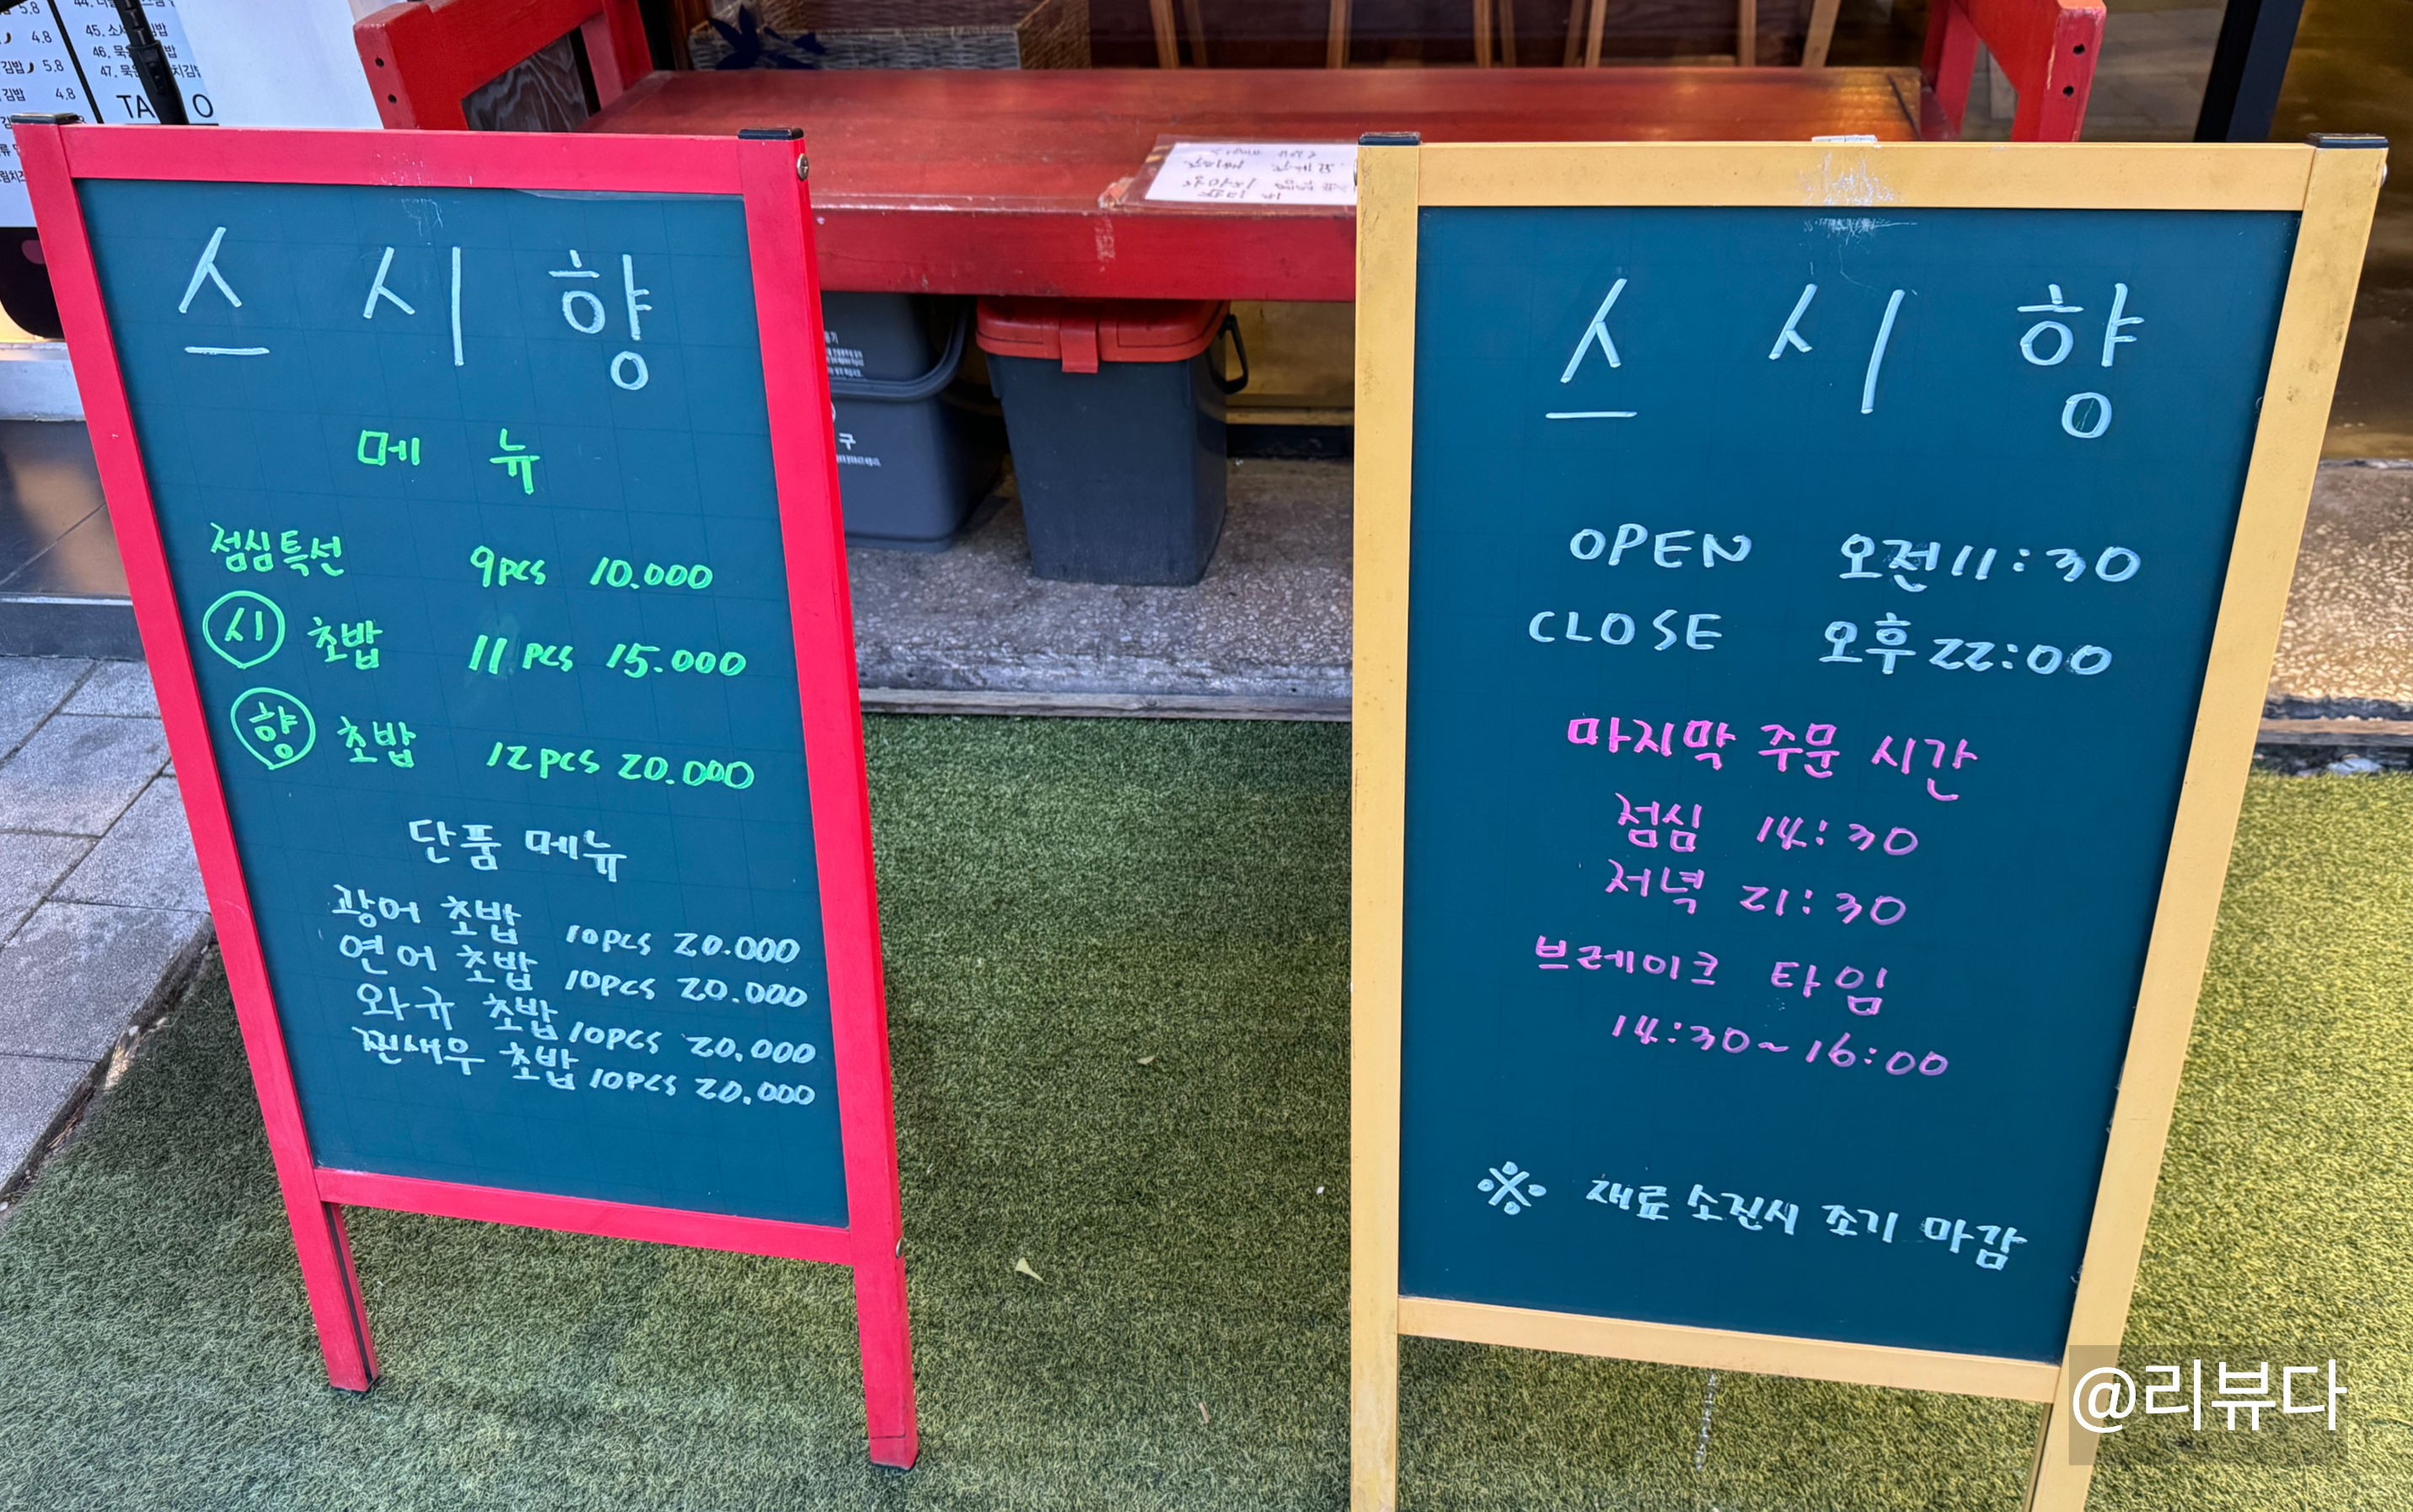 5.8
4.8
김밥 5.8
김밥 4.8
45. 소
46. 묵
47. 묵
스시향
메뉴
점심특선 9pcs 10.000
시 초밥 11pcs 15.000
향 초밥 12pcs 20.000
단품 메뉴
광어 초밥 10pcs 20.000
연어 초밥 10pcs 20.000
와규 초밥 10pcs 20.000
찐새우 초밥 10pcs 20.000
스시향
OPEN 오전 11:30
CLOSE 오후 22:00
마지막 주문 시간
점심 14:30
저녁 21:30
브레이크 타임
14:30~16:00
※ 재료 소진시 조기 마감
@리뷰다